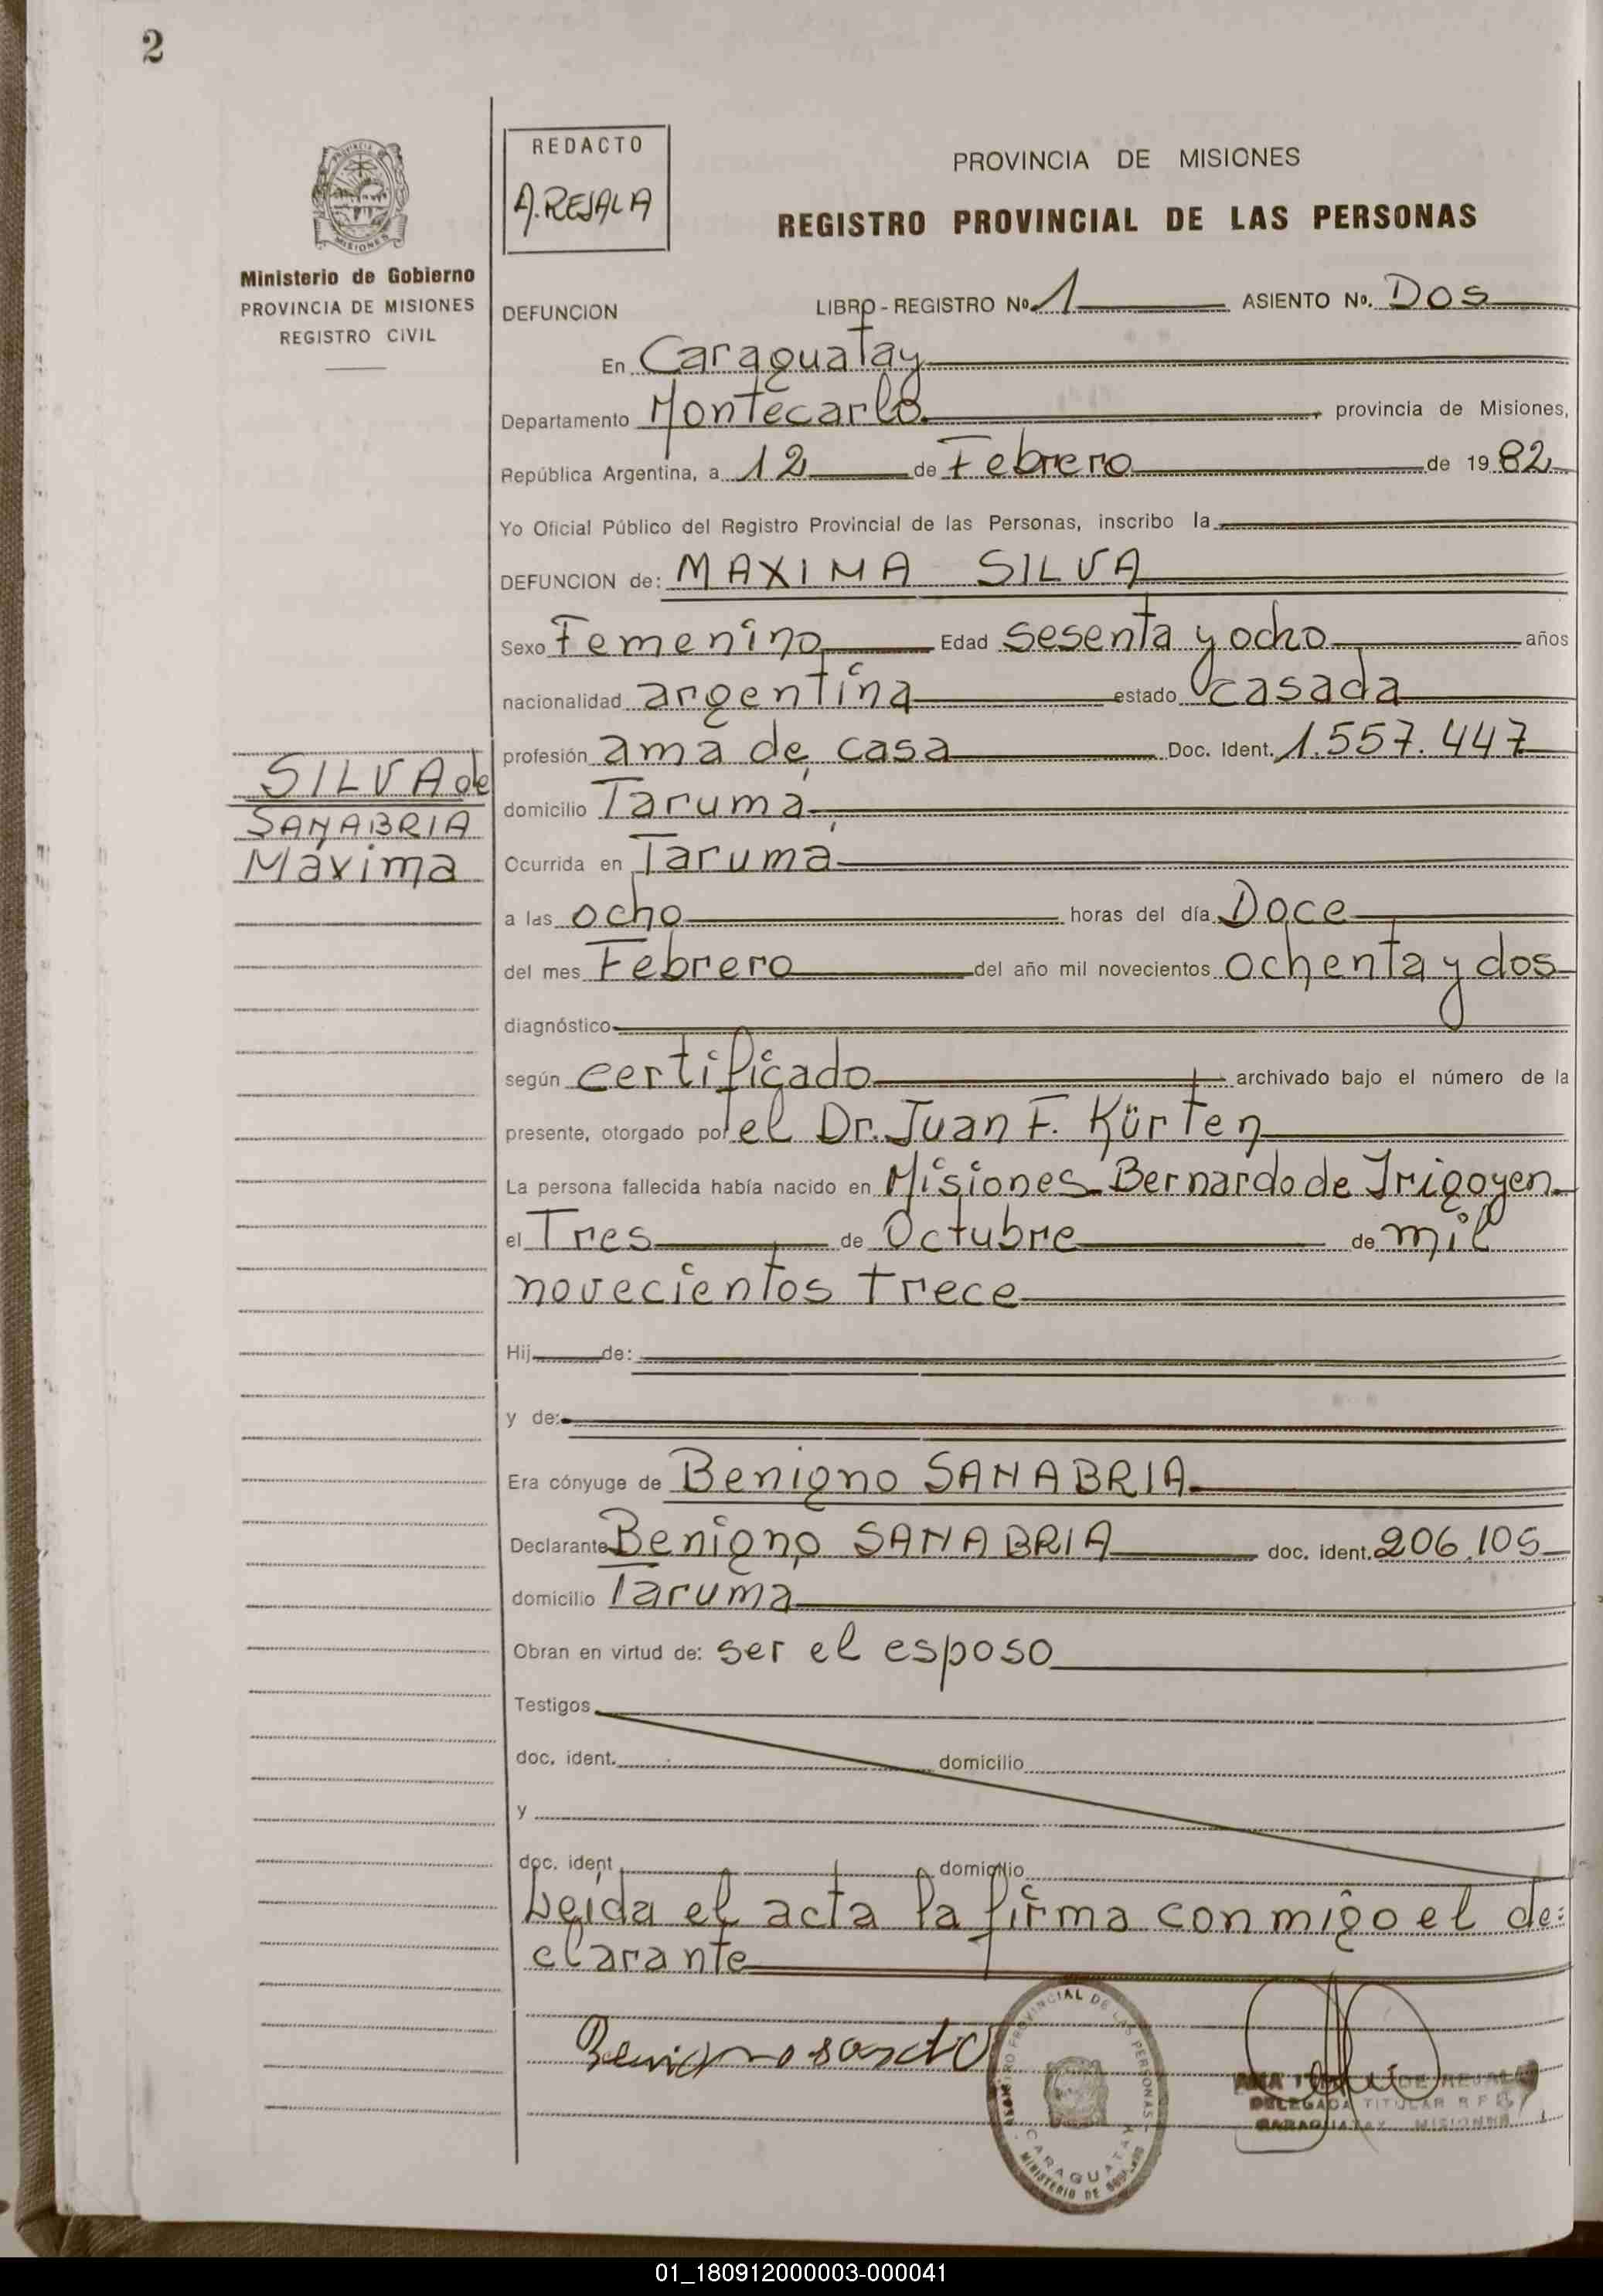 2
REDACTO
A. REJALA
PROVINCIA DE MISIONES
REGISTRO PROVINCIAL DE LAS PERSONAS
MISIONES
Ministerio de Gobierno
PROVINCIA DE MISIONES
REGISTRO CIVIL
DEFUNCION LIBRO - REGISTRO Nº 1 ASIENTO Nº. Dos
En Caraguatay
Departamento Montecarlo, provincia de Misiones,
República Argentina, a 12 de Febrero de 1982
Yo Oficial Público del Registro Provincial de las Personas, inscribo la
DEFUNCION de: MAXIMA SILVA
Sexo Femenino Edad sesenta y ocho años
nacionalidad argentina estado casada
profesión ama de casa Doc. Ident. 1.557.447
SILVA de
SANABRIA
Máxima
domicilio Taruma
Ocurrida en Taruma
a las ocho horas del día Doce
del mes Febrero del año mil novecientos ochenta y dos
diagnóstico
según certificado archivado bajo el número de la
presente, otorgado por el Dr. Juan F. Kürten
La persona fallecida había nacido en Misiones Bernardo de Irigoyen
el Tres de Octubre de mil
novecientos trece
Hij de:
y de:
Era cónyuge de Benigno SANABRIA
Declarante Benigno SANABRIA doc. ident. 206.105
domicilio Taruma
Obran en virtud de: ser el esposo
Testigos
doc. ident. domicilio
y
doc. ident domicilio
Leída el acta la firma conmigo el de:
clarante
Benigno
REGISTRO PROVINCIAL DE LAS PERSONAS
CARAGUATAY
MINISTERIO DE
ANA DE REJALA
DELEGADA TITULAR R P P
CARAGUATAY MISIONES
01_180912000003-000041